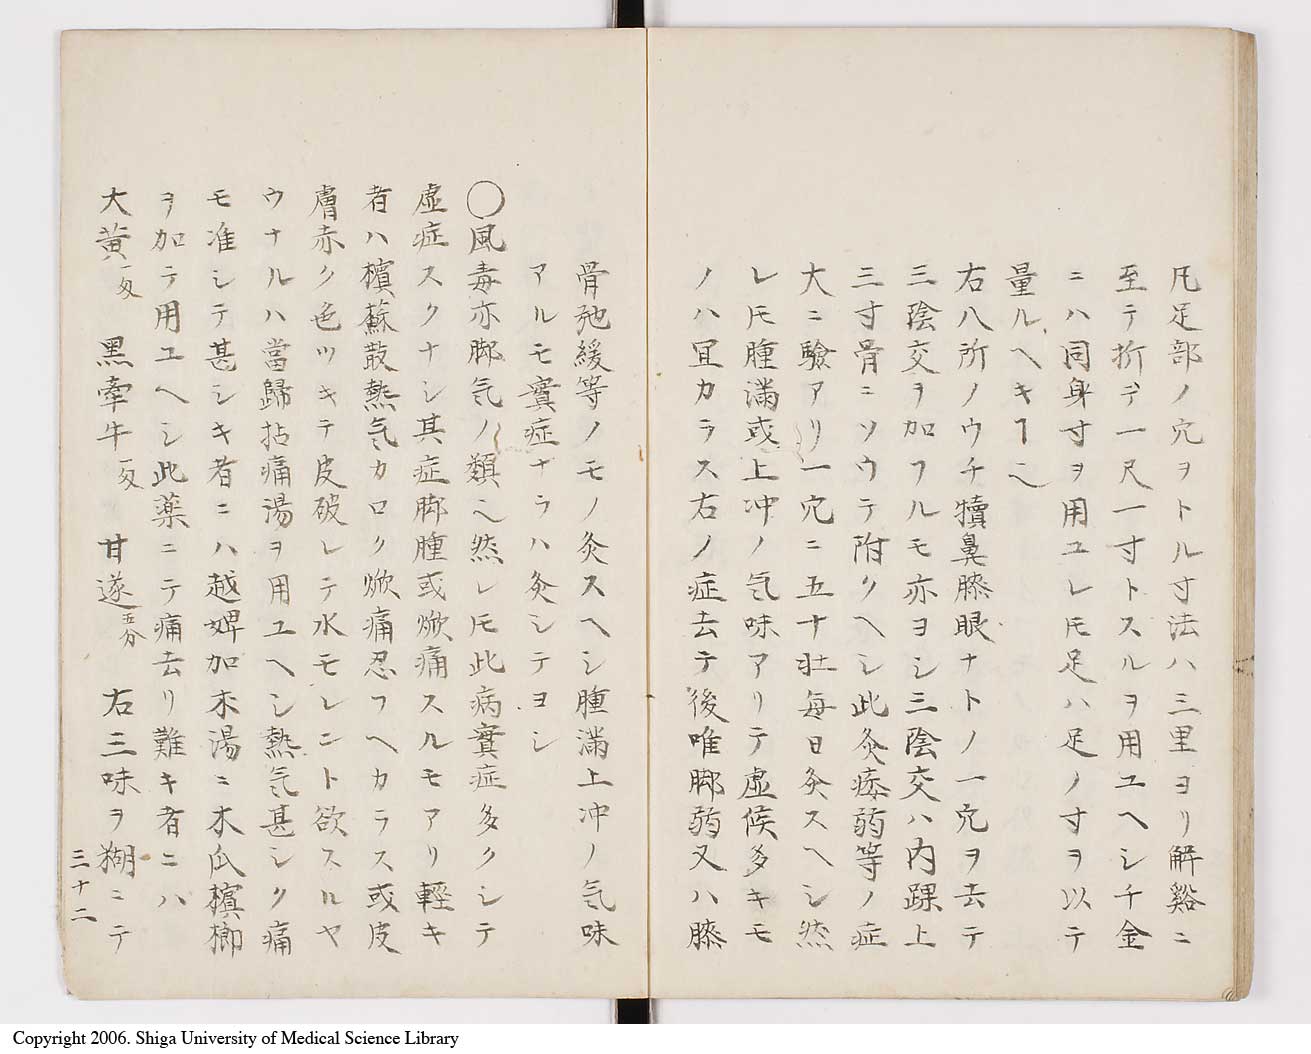 凡足部ノ穴ヲトル寸法ハ三里ヨリ解谿ニ
至テ折デ一尺一寸トスルヲ用ユヘシ千金
ニハ同身寸ヲ用ユレ𪜈足ハ足ノ寸ヲ以テ
量ルヘキヿ也
右八所ノウチ犢鼻膝眼ナトノ一穴ヲ去テ
三陰交ヲ加フルモ亦ヨシ三陰交ハ内踝上
三寸骨ニソウテ附クヘシ此灸痿弱等ノ症
大ニ驗アリ一穴ニ五十壮毎日灸スヘシ然
レ𪜈腫滿或上冲ノ気味アリテ虚候多キモ
ノハ冝カラス右ノ症去テ後唯脚弱又ハ膝
骨弛緩等ノモノ灸スヘシ腫滿上冲ノ気味
アルモ實症ナラハ灸シテヨシ
〇風毒亦脚気ノ類也然レ𪜈此病實症多クシテ
虚症スクナシ其症脚腫或焮痛スルモアリ輕キ
者ハ檳蘇散熱気カロク焮痛忍フヘカラス或皮
膚赤ク色ツキテ皮破レテ水モレント欲スルヤ
ウナルハ當歸拈痛湯ヲ用ユヘシ熱気甚シク痛
モ准シテ甚シキ者ニハ越婢加朮湯ニ木瓜檳榔
ヲ加テ用ユヘシ此薬ニテ痛去リ難キ者ニハ
大黄一匁 黒牽牛一匁 甘遂五分 右三味ヲ糊ニテ
三十二
Copyright 2006. Shiga University of Medical Science Library